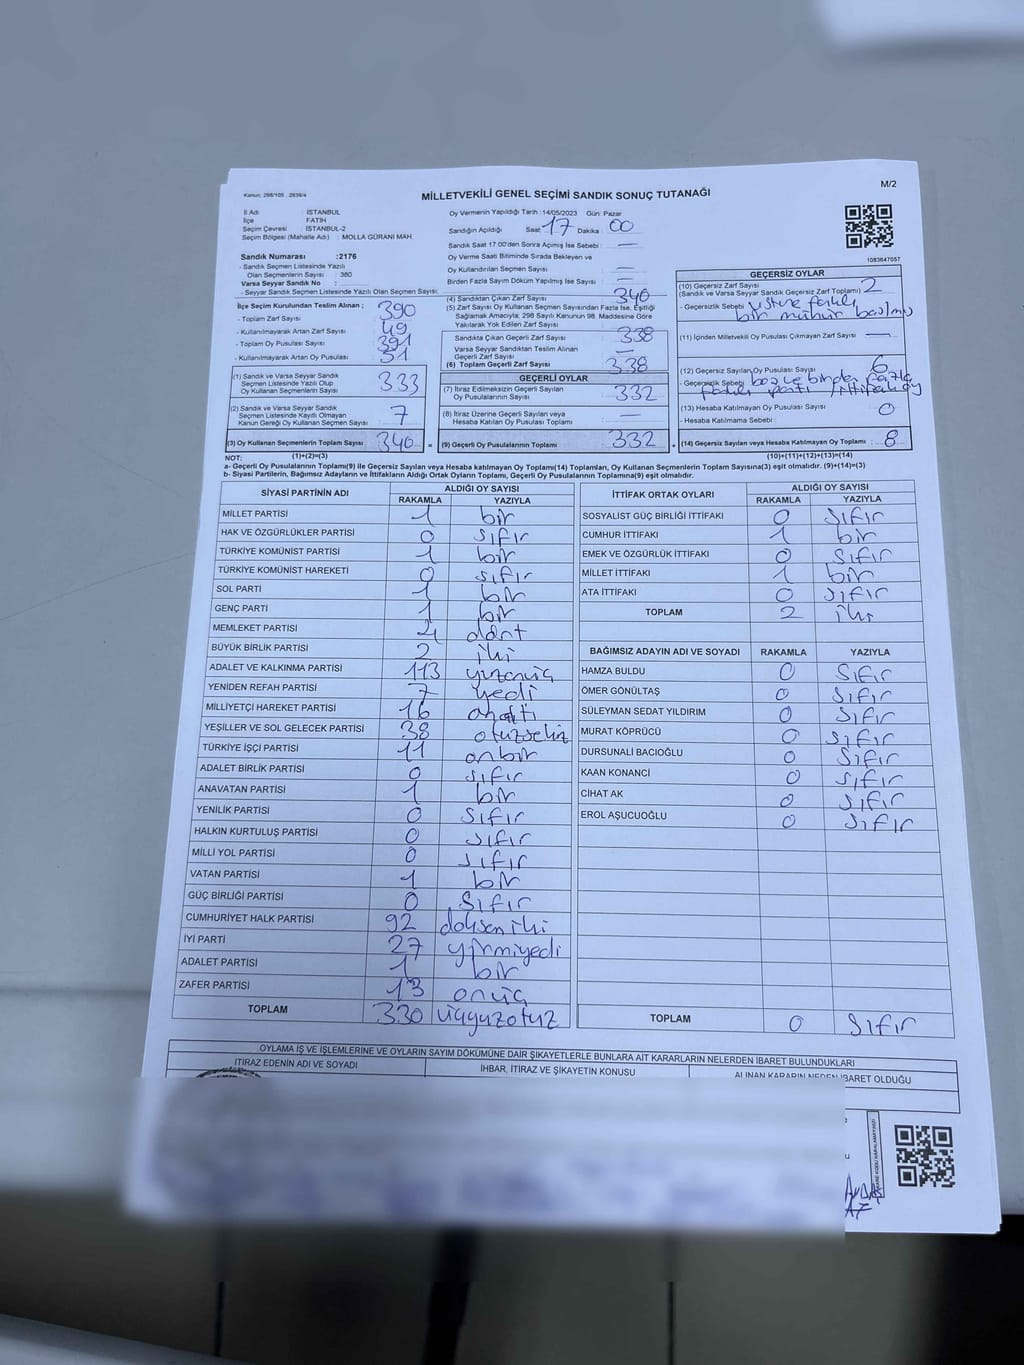 M/2
Kanun: 298/105 .2839/4
MİLLETVEKİLİ GENEL SEÇİMİ SANDIK SONUÇ TUTANAĞI
İl Adı : İSTANBUL
İlçe : FATİH
Seçim Çevresi : İSTANBUL-2
Seçim Bölgesi (Mahalle Adı) : MOLLA GÜRANİ MAH.
Oy Vermenin Yapıldığı Tarih :14/05/2023 Gün: Pazar
Sandığın Açıldığı : Saat 17 Dakika 00
Sandık Saat 17:00'den Sonra Açılmış İse Sebebi : —
Oy Verme Saati Bitiminde Sırada Bekleyen ve
Oy Kullandırılan Seçmen Sayısı : —
Birden Fazla Sayım Döküm Yapılmış İse Sayısı : —
1083647057
Sandık Numarası :2176
- Sandık Seçmen Listesinde Yazılı
Olan Seçmenlerin Sayısı : 380
Varsa Seyyar Sandık No :
- Seyyar Sandık Seçmen Listesinde Yazılı Olan Seçmen Sayısı:
İlçe Seçim Kurulundan Teslim Alınan :
- Toplam Zarf Sayısı : 390
- Kullanılmayarak Artan Zarf Sayısı : 49
- Toplam Oy Pusulası Sayısı : 391
- Kullanılmayarak Artan Oy Pusulası : 51
(1) Sandık ve Varsa Seyyar Sandık
Seçmen Listesinde Yazılı Olup
Oy Kullanan Seçmenlerin Sayısı : 333
(2) Sandık ve Varsa Seyyar Sandık
Seçmen Listesinde Kayıtlı Olmayan
Kanun Gereği Oy Kullanan Seçmen Sayısı : 7
(3) Oy Kullanan Seçmenlerin Toplam Sayısı : 340 =
(1)+(2)=(3)
(4) Sandıktan Çıkan Zarf Sayısı : 340
(5) Zarf Sayısı Oy Kullanan Seçmen Sayısından Fazla İse, Eşitliği
Sağlamak Amacıyla; 298 Sayılı Kanunun 98. Maddesine Göre
Yakılarak Yok Edilen Zarf Sayısı : —
Sandıkta Çıkan Geçerli Zarf Sayısı : 338
Varsa Seyyar Sandıktan Teslim Alınan
Geçerli Zarf Sayısı : —
(6) Toplam Geçerli Zarf Sayısı : 338
GEÇERLİ OYLAR
(7) İtiraz Edilmeksizin Geçerli Sayılan
Oy Pusulalarının Sayısı : 332
(8) İtiraz Üzerine Geçerli Sayılan veya
Hesaba Katılan Oy Pusulası Sayısı : —
(9) Geçerli Oy Pusulalarının Toplamı : 332 +
GEÇERSİZ OYLAR
(10) Geçersiz Zarf Sayısı : 2
(Sandık ve Varsa Seyyar Sandık Geçersiz Zarf Toplamı)
- Geçersizlik Sebebi : üstüne farklı
bir mühür basılmış
(11) İçinden Milletvekili Oy Pusulası Çıkmayan Zarf Sayısı : —
(12) Geçersiz Sayılan Oy Pusulası Sayısı : 6
- Geçersizlik Sebebi : fazla
farklı parti
(13) Hesaba Katılmayan Oy Pusulası Sayısı : 0
- Hesaba Katılmama Sebebi :
(14) Geçersiz Sayılan veya Hesaba Katılmayan Oy Toplamı : 8
(10)+(11)+(12)+(13)=(14)
NOT:
a- Geçerli Oy Pusulalarının Toplamı(9) ile Geçersiz Sayılan veya Hesaba katılmayan Oy Toplamı(14) Toplamları, Oy Kullanan Seçmenlerin Toplam Sayısına(3) eşit olmalıdır. (9)+(14)=(3)
b- Siyasi Partilerin, Bağımsız Adayların ve İttifakların Aldığı Ortak Oyların Toplamı, Geçerli Oy Pusulalarının Toplamına(9) eşit olmalıdır.
SİYASİ PARTİNİN ADI ALDIĞI OY SAYISI
RAKAMLA YAZIYLA
MİLLET PARTİSİ 1 bir
HAK VE ÖZGÜRLÜKLER PARTİSİ 0 sıfır
TÜRKİYE KOMÜNİST PARTİSİ 1 bir
TÜRKİYE KOMÜNİST HAREKETİ 0 sıfır
SOL PARTİ 1 bir
GENÇ PARTİ 1 bir
MEMLEKET PARTİSİ 4 dört
BÜYÜK BİRLİK PARTİSİ 2 iki
ADALET VE KALKINMA PARTİSİ 113 yüzonüç
YENİDEN REFAH PARTİSİ 7 yedi
MİLLİYETÇİ HAREKET PARTİSİ 16 onaltı
YEŞİLLER VE SOL GELECEK PARTİSİ 38 otuzsekiz
TÜRKİYE İŞÇİ PARTİSİ 11 onbir
ADALET BİRLİK PARTİSİ 0 sıfır
ANAVATAN PARTİSİ 1 bir
YENİLİK PARTİSİ 0 sıfır
HALKIN KURTULUŞ PARTİSİ 0 sıfır
MİLLİ YOL PARTİSİ 0 sıfır
VATAN PARTİSİ 1 bir
GÜÇ BİRLİĞİ PARTİSİ 0 sıfır
CUMHURİYET HALK PARTİSİ 92 doksaniki
İYİ PARTİ 27 yirmiyedi
ADALET PARTİSİ 1 bir
ZAFER PARTİSİ 13 onüç
TOPLAM 330 üçyüzotuz
İTTİFAK ORTAK OYLARI ALDIĞI OY SAYISI
RAKAMLA YAZIYLA
SOSYALİST GÜÇ BİRLİĞİ İTTİFAKI 0 sıfır
CUMHUR İTTİFAKI 1 bir
EMEK VE ÖZGÜRLÜK İTTİFAKI 0 sıfır
MİLLET İTTİFAKI 1 bir
ATA İTTİFAKI 0 sıfır
TOPLAM 2 iki
BAĞIMSIZ ADAYIN ADI VE SOYADI RAKAMLA YAZIYLA
HAMZA BULDU 0 sıfır
ÖMER GÖNÜLTAŞ 0 sıfır
SÜLEYMAN SEDAT YILDIRIM 0 sıfır
MURAT KÖPRÜCÜ 0 sıfır
DURSUNALİ BACIOĞLU 0 sıfır
KAAN KONANCİ 0 sıfır
CİHAT AK 0 sıfır
EROL AŞUCUOĞLU 0 sıfır
TOPLAM 0 sıfır
OYLAMA İŞ VE İŞLEMLERİNE VE OYLARIN SAYIM DÖKÜMÜNE DAİR ŞİKAYETLERLE BUNLARA AİT KARARLARIN NELERDEN İBARET BULUNDUKLARI
İTİRAZ EDENİN ADI VE SOYADI İHBAR, İTİRAZ VE ŞİKAYETİN KONUSU ALINAN KARARIN NEDEN İBARET OLDUĞU